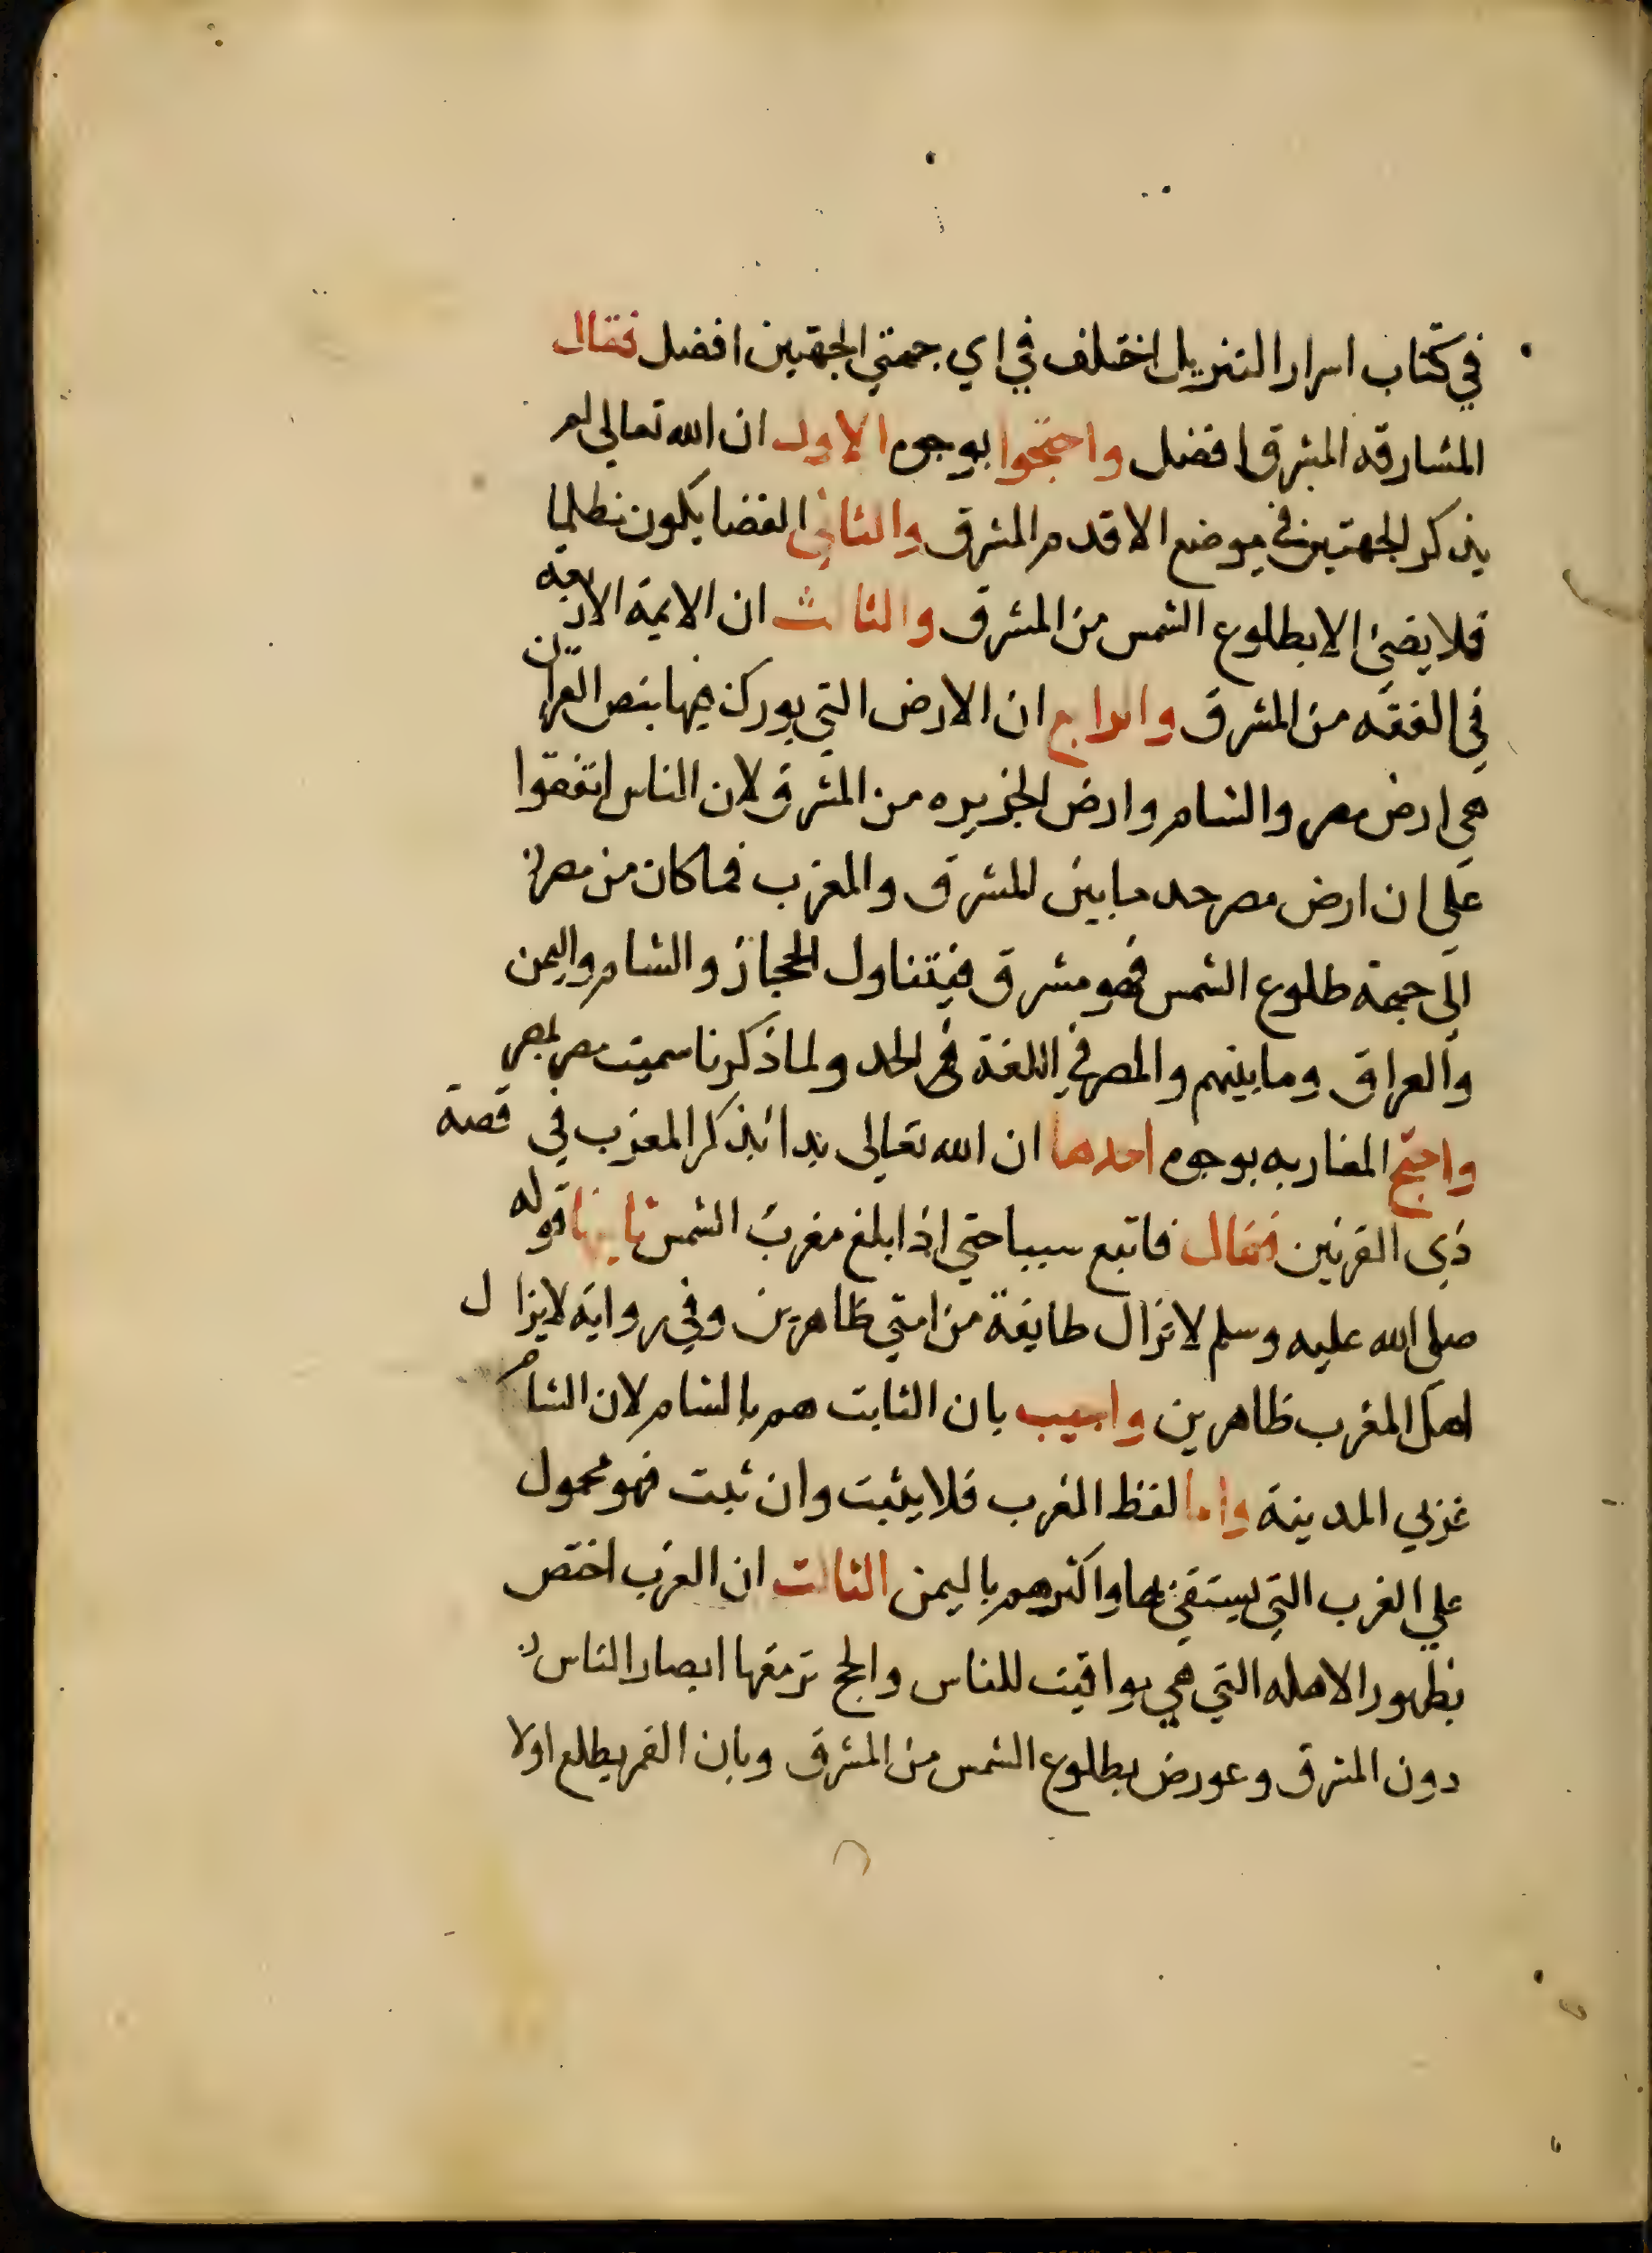 في كتاب اسرار التنزيل اختلف في اي جهتي الجهتين افضل فقال
المشارقه المشرق افضل واحتجوا بوجوه الاول ان الله تعالى لم
يذكر الجهتين في موضع الا قدم المشرق والثاني الفضا يكون مظلما
فلا يضيئ الا بطلوع الشمس من المشرق والثالث ان الايمة الاربعه
في الفقه من المشرق والرابع ان الارض التي بورك فيها بنص القران
هي ارض مصر والشام وارض الجزيره من المشرق لان الناس اتفقوا
علي ان ارض مصر حد ما بين المشرق والمغرب فما كان من مصر
الي جهة طلوع الشمس فهو مشرق فيتناول الحجاز والشام واليمن
والعراق وما بينهم والمصر في اللغة هي الحد ولما ذكرنا سميت مصر بمصر
واحتج المغاربه بوجوه احدها ان الله تعالى بدا بذكر المغرب في قصة
ذي القرنين فقال فاتبع سببا حتي اذا بلغ مغرب الشمس ثانيها قوله
صلى الله عليه وسلم لا تزال طايفة من امتي ظاهرين وفي رواية لا يزال
اهل المغرب ظاهرين واجيب بان الثابت هم بالشام لان الشام
غربي المدينة واما لفظ المغرب فلا يثبت وان ثبت فهو محمول
علي الغرب التي يستقي بها واكثرهم باليمن الثالث ان الغرب اختص
بظهور الاهله التي هي مواقيت للناس والحج ترمقها ابصار الناس
دون المشرق وعورض بطلوع الشمس من المشرق وبان القمر يطلع اولا